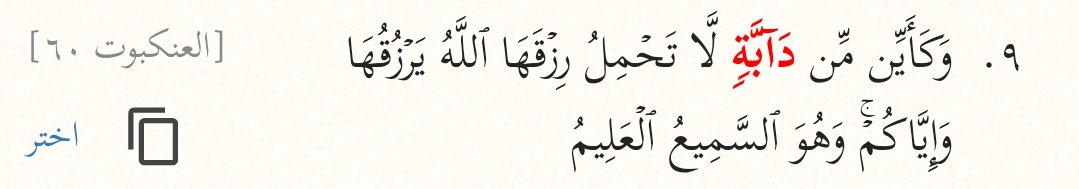 ٩. وَكَأَيِّن مِّن دَآبَّةٍ لَّا تَحْمِلُ رِزْقَهَا ٱللَّهُ يَرْزُقُهَا [العنكبوت ٦٠]
وَإِيَّاكُمْ ۚ وَهُوَ ٱلسَّمِيعُ ٱلْعَلِيمُ اختر